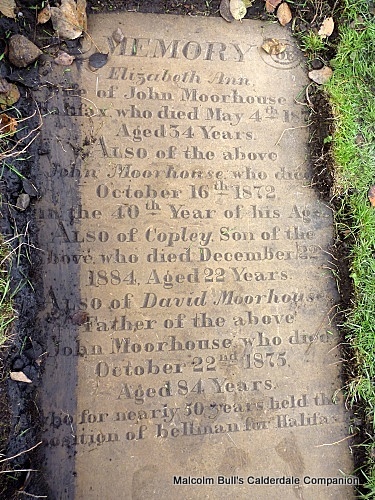 MEMORY OF
Elizabeth Ann,
of John Moorhouse
who died May 4th 187
Aged 34 Years.
Also of the above
John Moorhouse, who died
October 16th 1872,
in the 40th Year of his Age.
Also of Copley, Son of the
above, who died December 22
1884, Aged 22 Years.
Also of David Moorhouse
Father of the above
John Moorhouse, who died
October 22nd 1875,
Aged 84 Years.
who for nearly 50 years held the
position of bellman for Halifax
Malcolm Bull's Calderdale Companion